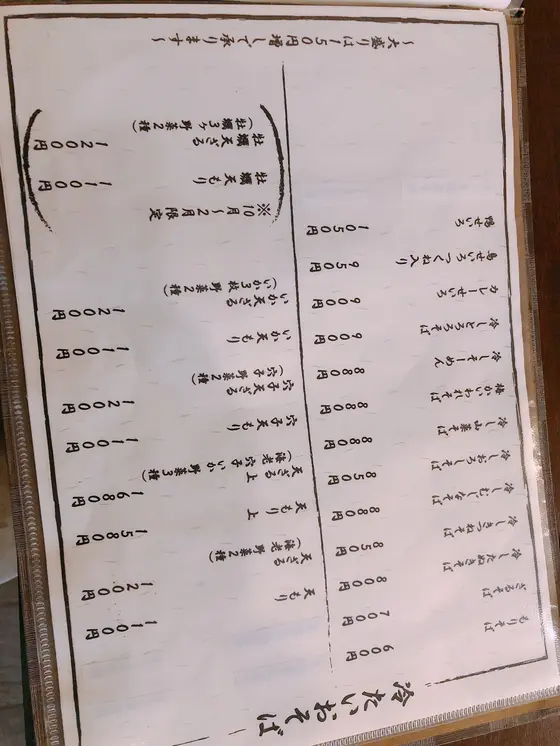 冷たいおそば
もりそば 600円
ざるそば 700円
冷したぬきそば 800円
冷しきつねそば 850円
冷しむじなそば 880円
冷しおろしそば 850円
冷し山菜そば 880円
梅かいわれそば 880円
冷しそーめん 880円
冷しとろろそば 900円
カレーせいろ 900円
鳥せいろつくね入り 950円
鴨せいろ 1050円
天もり 1100円
天ざる 1200円
(海老 野菜2種)
天もり上 1580円
天ざる上 1680円
(海老 穴子 いか 野菜3種)
穴子天もり 1100円
穴子天ざる 1200円
(穴子 野菜2種)
いか天もり 1100円
いか天ざる 1200円
(いか3枚 野菜2種)
※10月～2月限定
牡蠣天もり 1100円
牡蠣天ざる 1200円
(牡蠣3ヶ 野菜2種)
～大盛りは150円増しで承ります～